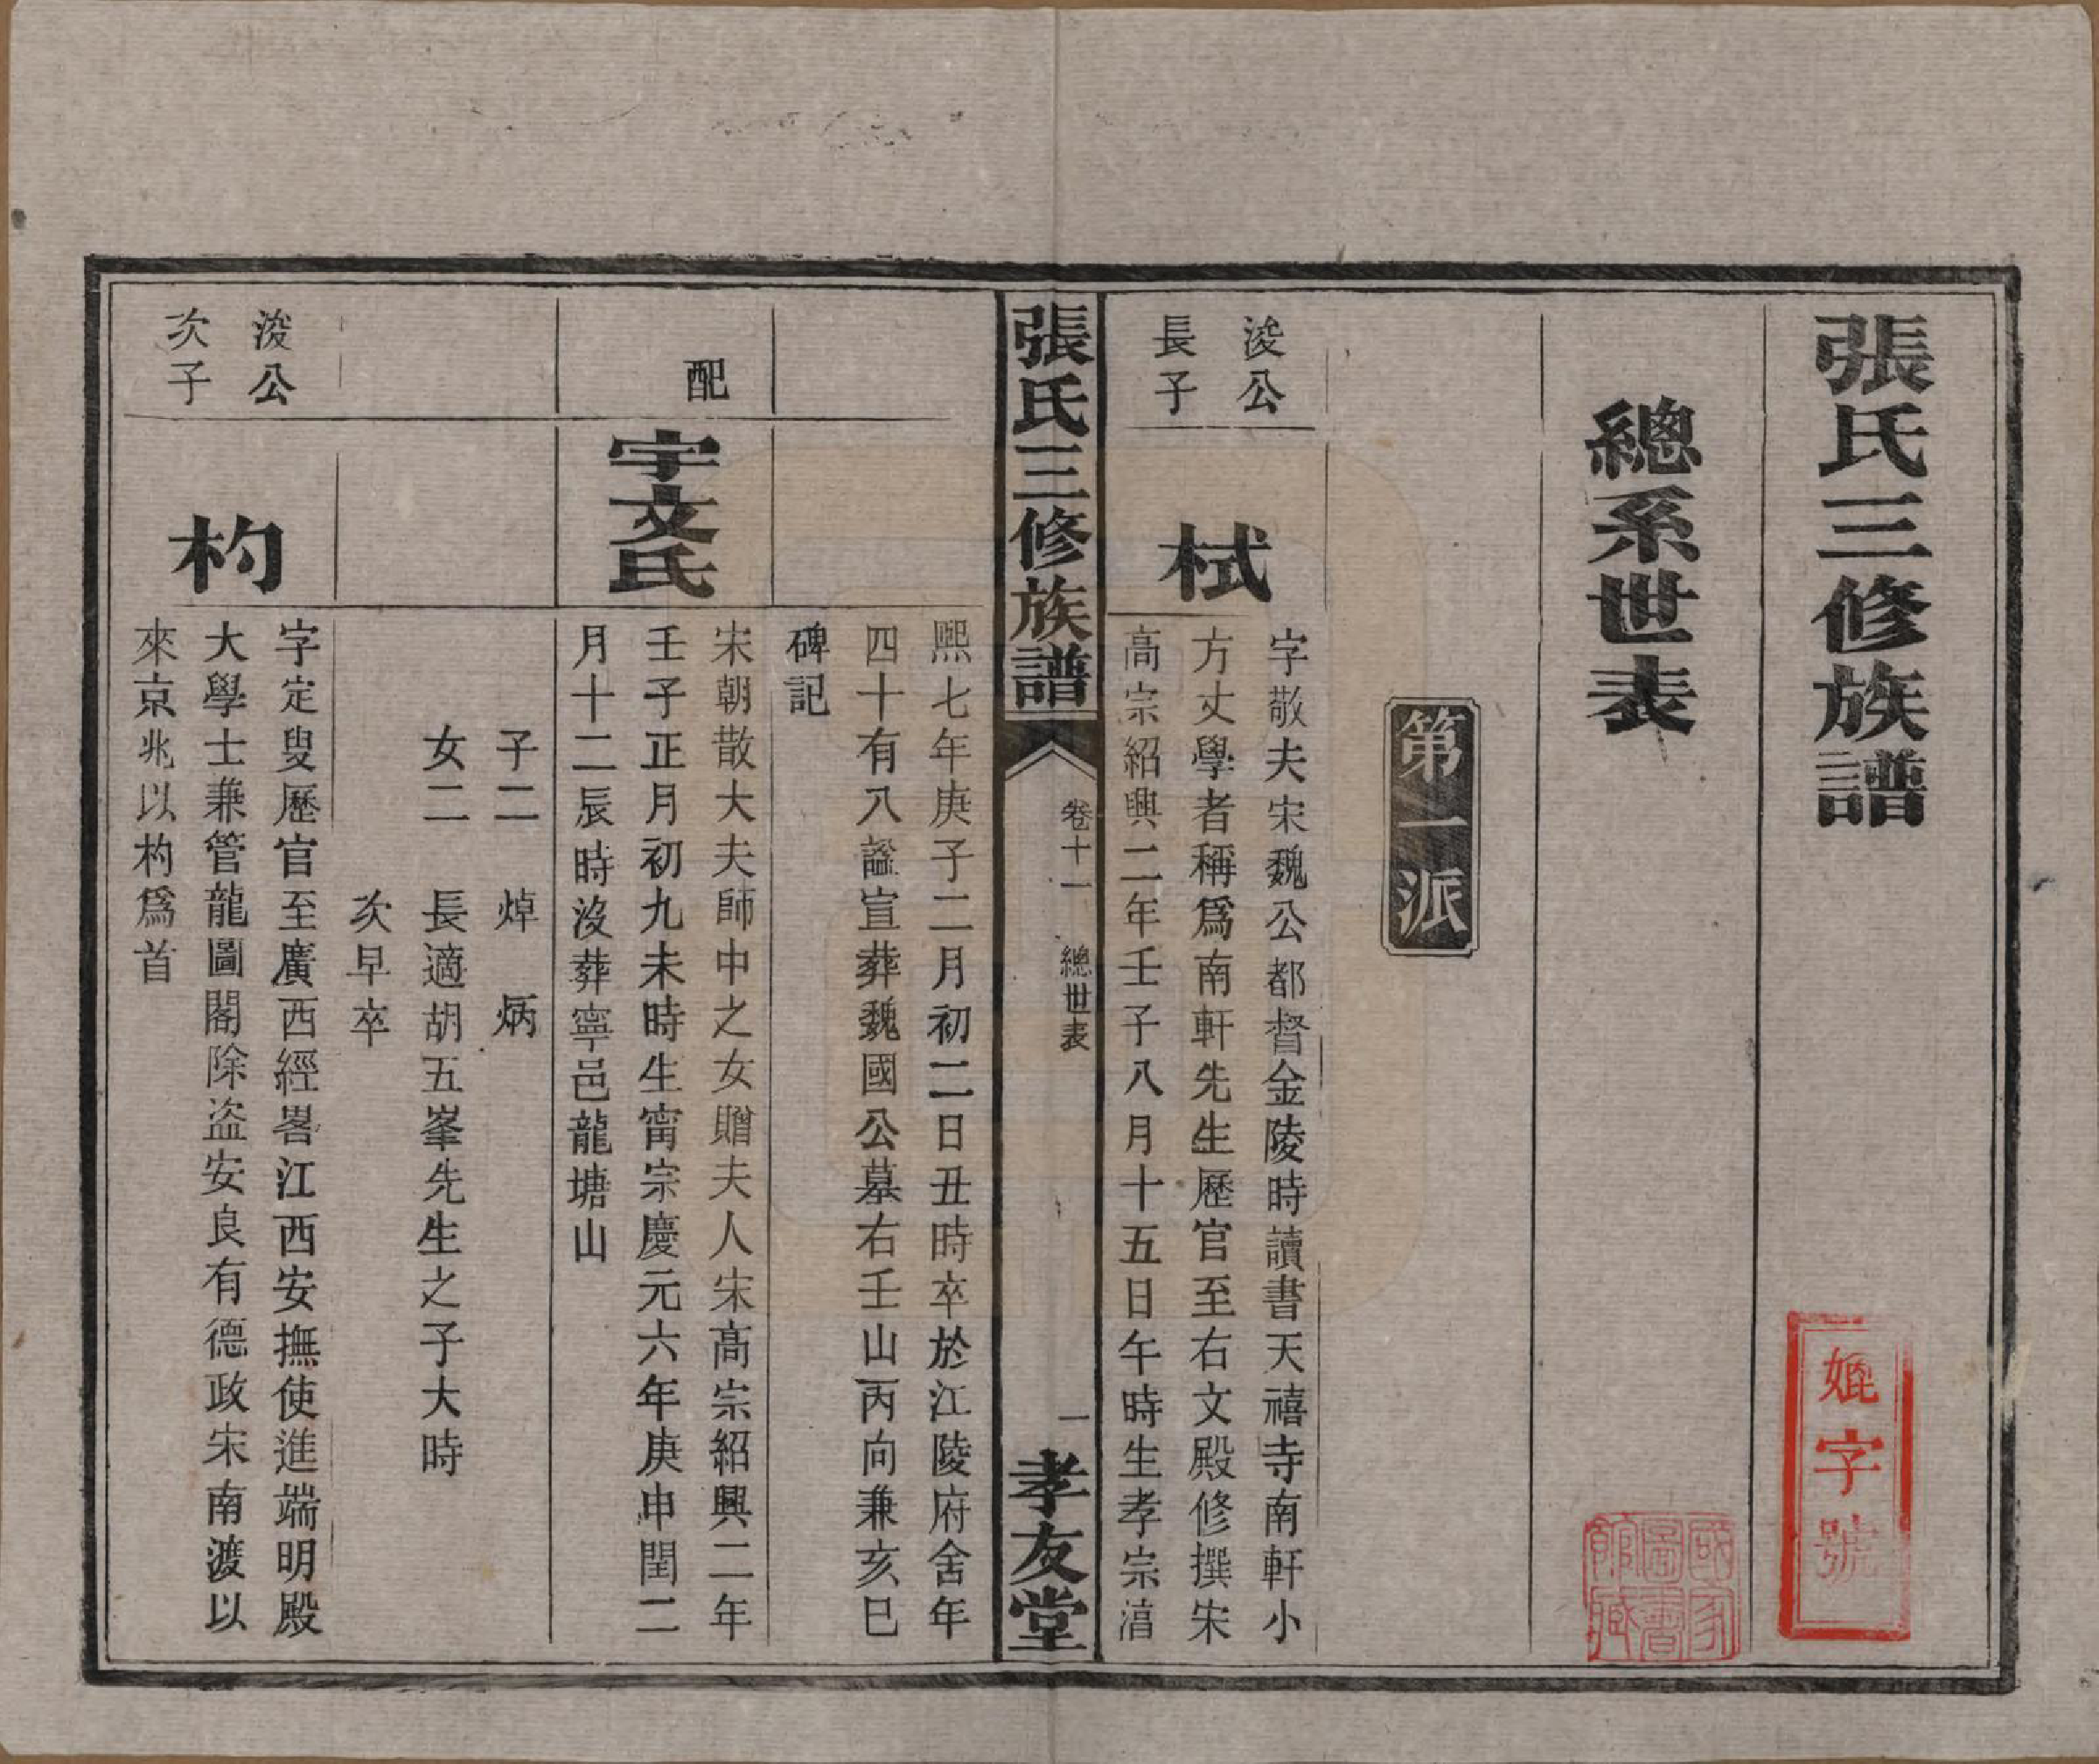 張氏三修族譜
總系世表
第一派
浚公
長子
栻
字敬夫宋魏公都督金陵時讀書天禧寺南軒小
方丈學者稱爲南軒先生歷官至右文殿修撰宋
高宗紹興二年壬子八月十五日午時生孝宗湻
張氏三修族譜
卷十一
總世表
一
孝友堂
熙七年庚子二月初二日丑時卒於江陵府舍年
四十有八謚宣葬魏國公墓右壬山丙向兼亥巳
碑記
配
宇文氏
宋朝散大夫師中之女贈夫人宋高宗紹興二年
壬子正月初九未時生甯宗慶元六年庚申閏二
月十二辰時没葬寧邑龍塘山
子二　焯　炳
女二　長適胡五峯先生之子大時
次早卒
浚公
次子
杓
字定叟歷官至廣西經畧江西安撫使進端明殿
大學士兼管龍圖閣除盜安良有德政宋南渡以
來京兆以杓爲首
字號
國家
圖書
館藏